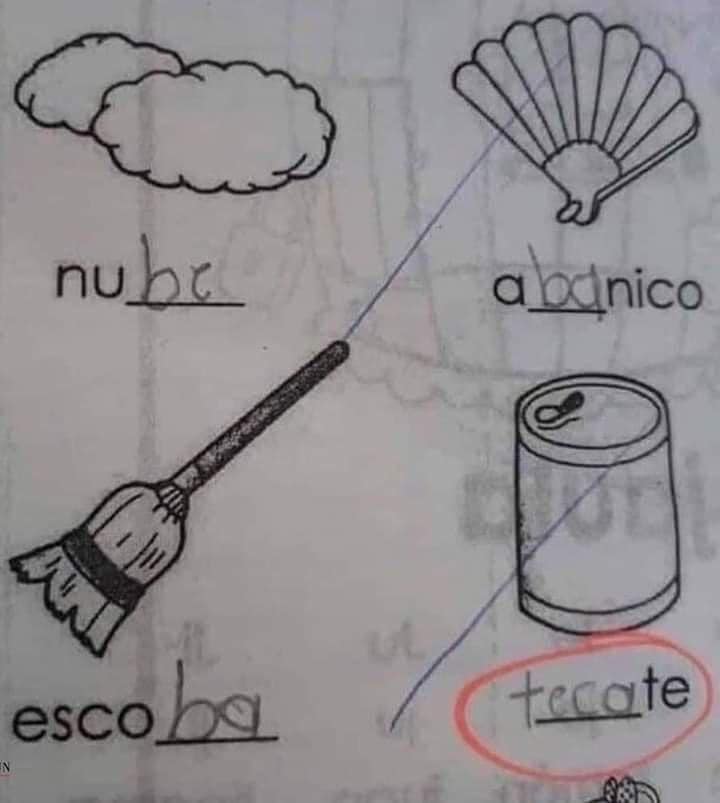 nube
abanico
escoba
tecate